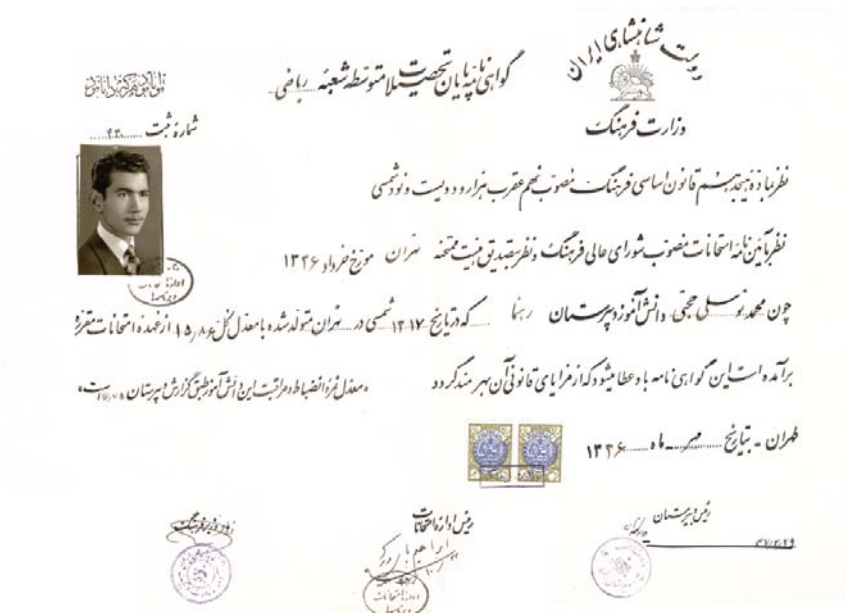 دولت شاهنشاهی ایران
وزارت فرهنگ
گواهی نامه پایان تحصیلات متوسطه شعبه ریاضی
توانا بود هر که دانا بود
شماره ثبت
نظر بماده هیجدهم قانون اساسی فرهنگ مصوب نهم عقرب هزار و دویست و نود شمسی
نظر بآئین نامه امتحانات مصوب شورای عالی فرهنگ و نظر بتصدیق هیئت ممتحنه تهران مورخ خرداد ۱۳۳۶
چون محمد توسلی حجتی دانش آموز دبیرستان رهنما که در تاریخ ۱۳۱۷ شمسی در تهران متولد شده با معدل کل ۱۵٫۸۶ از عهده امتحانات مقرره
برآمده است این گواهی نامه باو عطا میشود که از مزایای قانونی آن بهره مند گردد
معدل نمره انضباط و مراقبت این دانش آموز طبق گزارش دبیرستان است
طهران - بتاریخ مهر ماه ۱۳۳۶
رئیس دبیرستان
رئیس اداره امتحانات
وزیر فرهنگ